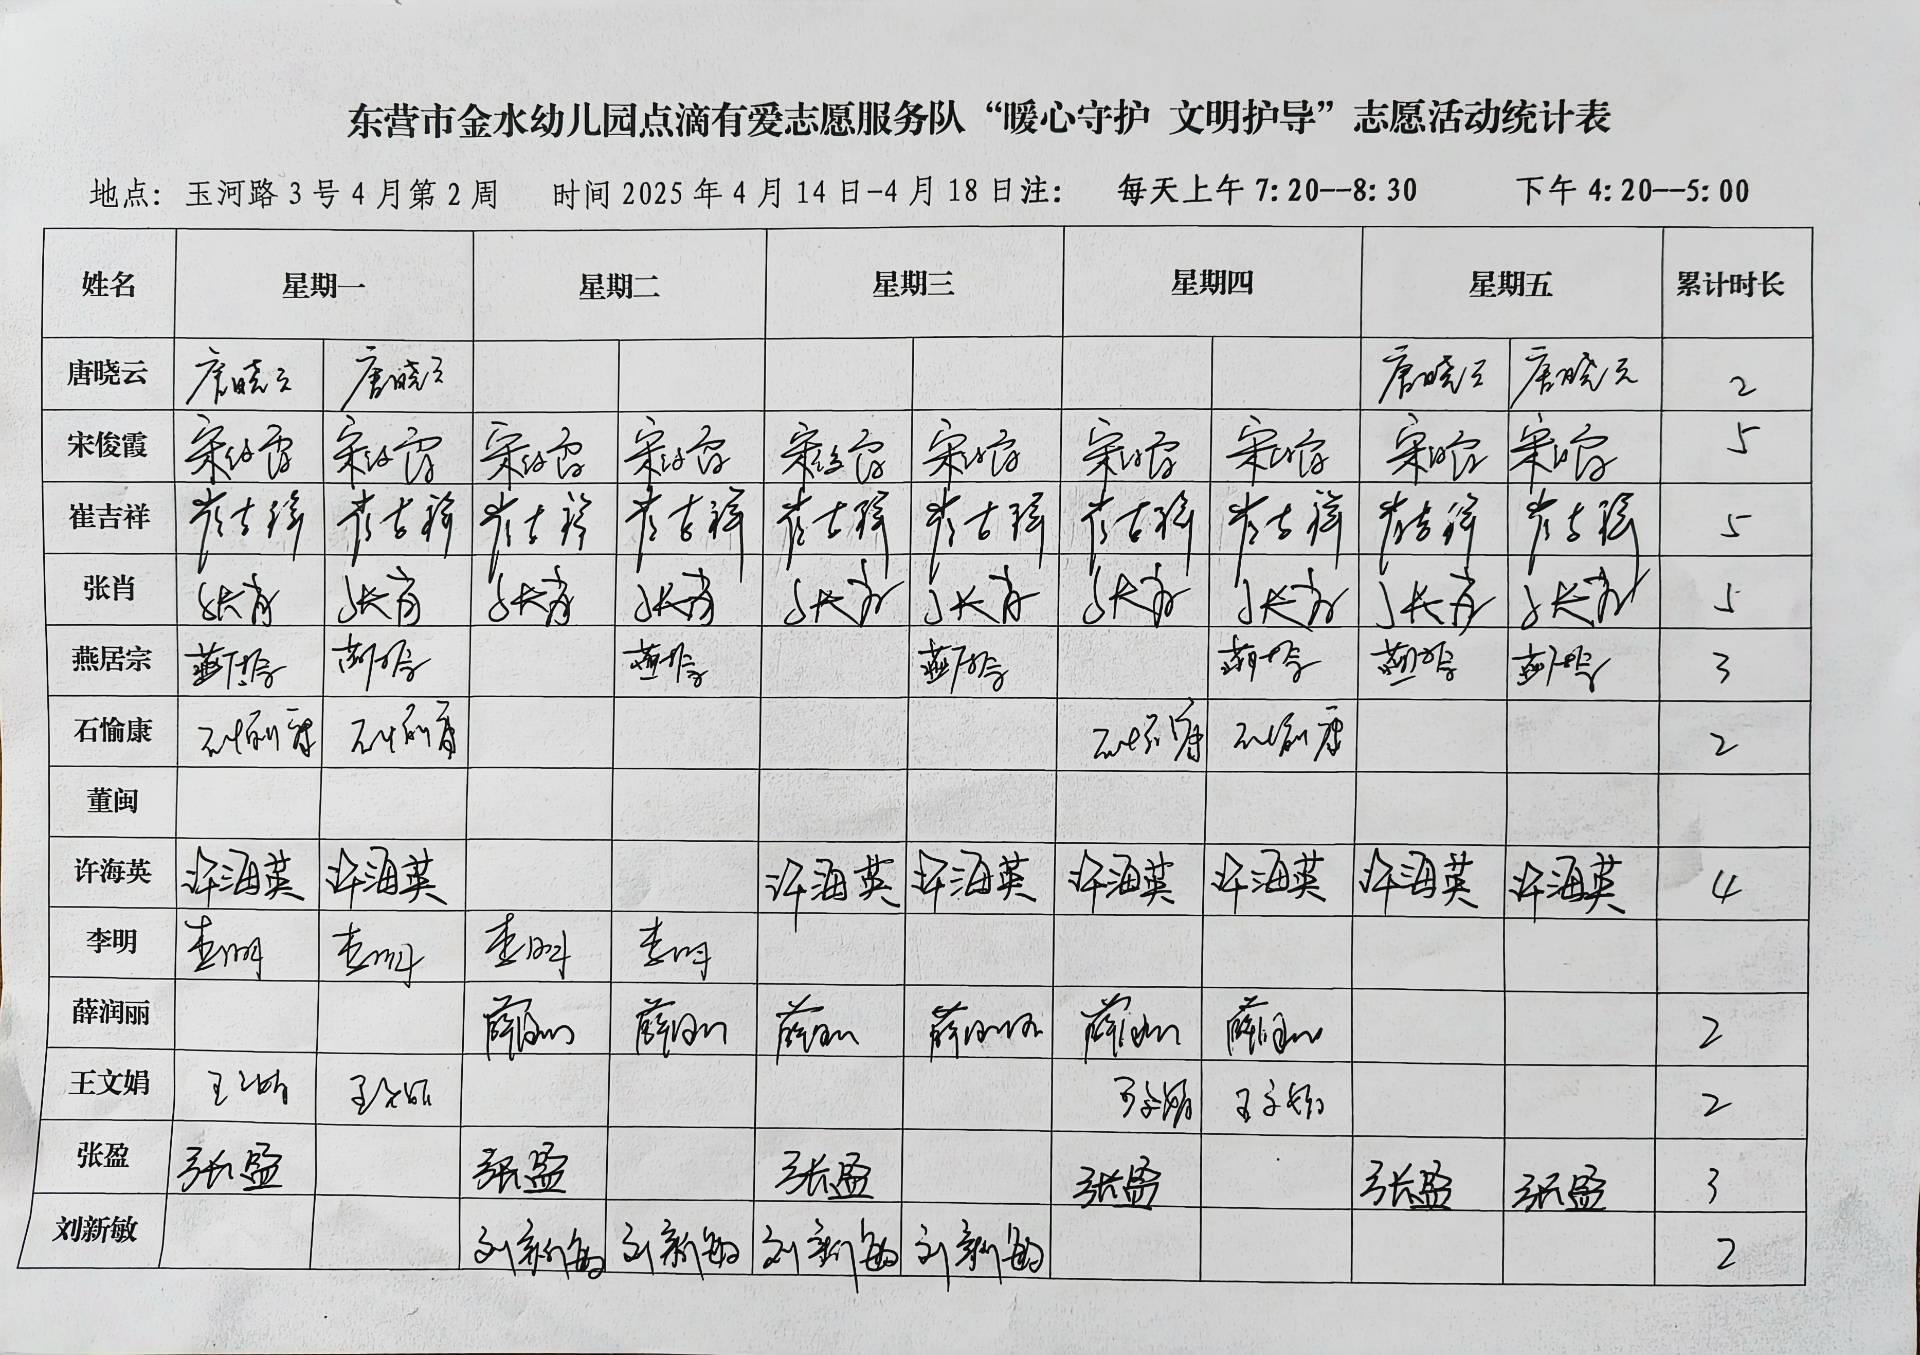 东营市金水幼儿园点滴有爱志愿服务队“暖心守护 文明护导”志愿活动统计表
地点：玉河路3号4月第2周 时间2025年4月14日-4月18日注： 每天上午7:20--8:30 下午4:20--5:00
姓名 星期一 星期二 星期三 星期四 星期五 累计时长
唐晓云 唐晓云 唐晓云 唐晓云 唐晓云 2
宋俊霞 宋俊霞 宋俊霞 宋俊霞 宋俊霞 宋俊霞 宋俊霞 宋俊霞 宋俊霞 宋俊霞 宋俊霞 5
崔吉祥 崔吉祥 崔吉祥 崔吉祥 崔吉祥 崔吉祥 崔吉祥 崔吉祥 崔吉祥 崔吉祥 崔吉祥 5
张肖 张肖 张肖 张肖 张肖 张肖 张肖 张肖 张肖 张肖 张肖 5
燕居宗 燕居宗 燕居宗 燕居宗 燕居宗 燕居宗 燕居宗 燕居宗 3
石愉康 石愉康 石愉康 石愉康 石愉康 2
董闽
许海英 许海英 许海英 许海英 许海英 许海英 许海英 许海英 许海英 4
李明 李明 李明 李明 李明
薛润丽 薛润丽 薛润丽 薛润丽 薛润丽 薛润丽 薛润丽 2
王文娟 王文娟 王文娟 王文娟 王文娟 2
张盈 张盈 张盈 张盈 张盈 张盈 张盈 3
刘新敏 刘新敏 刘新敏 刘新敏 刘新敏 2